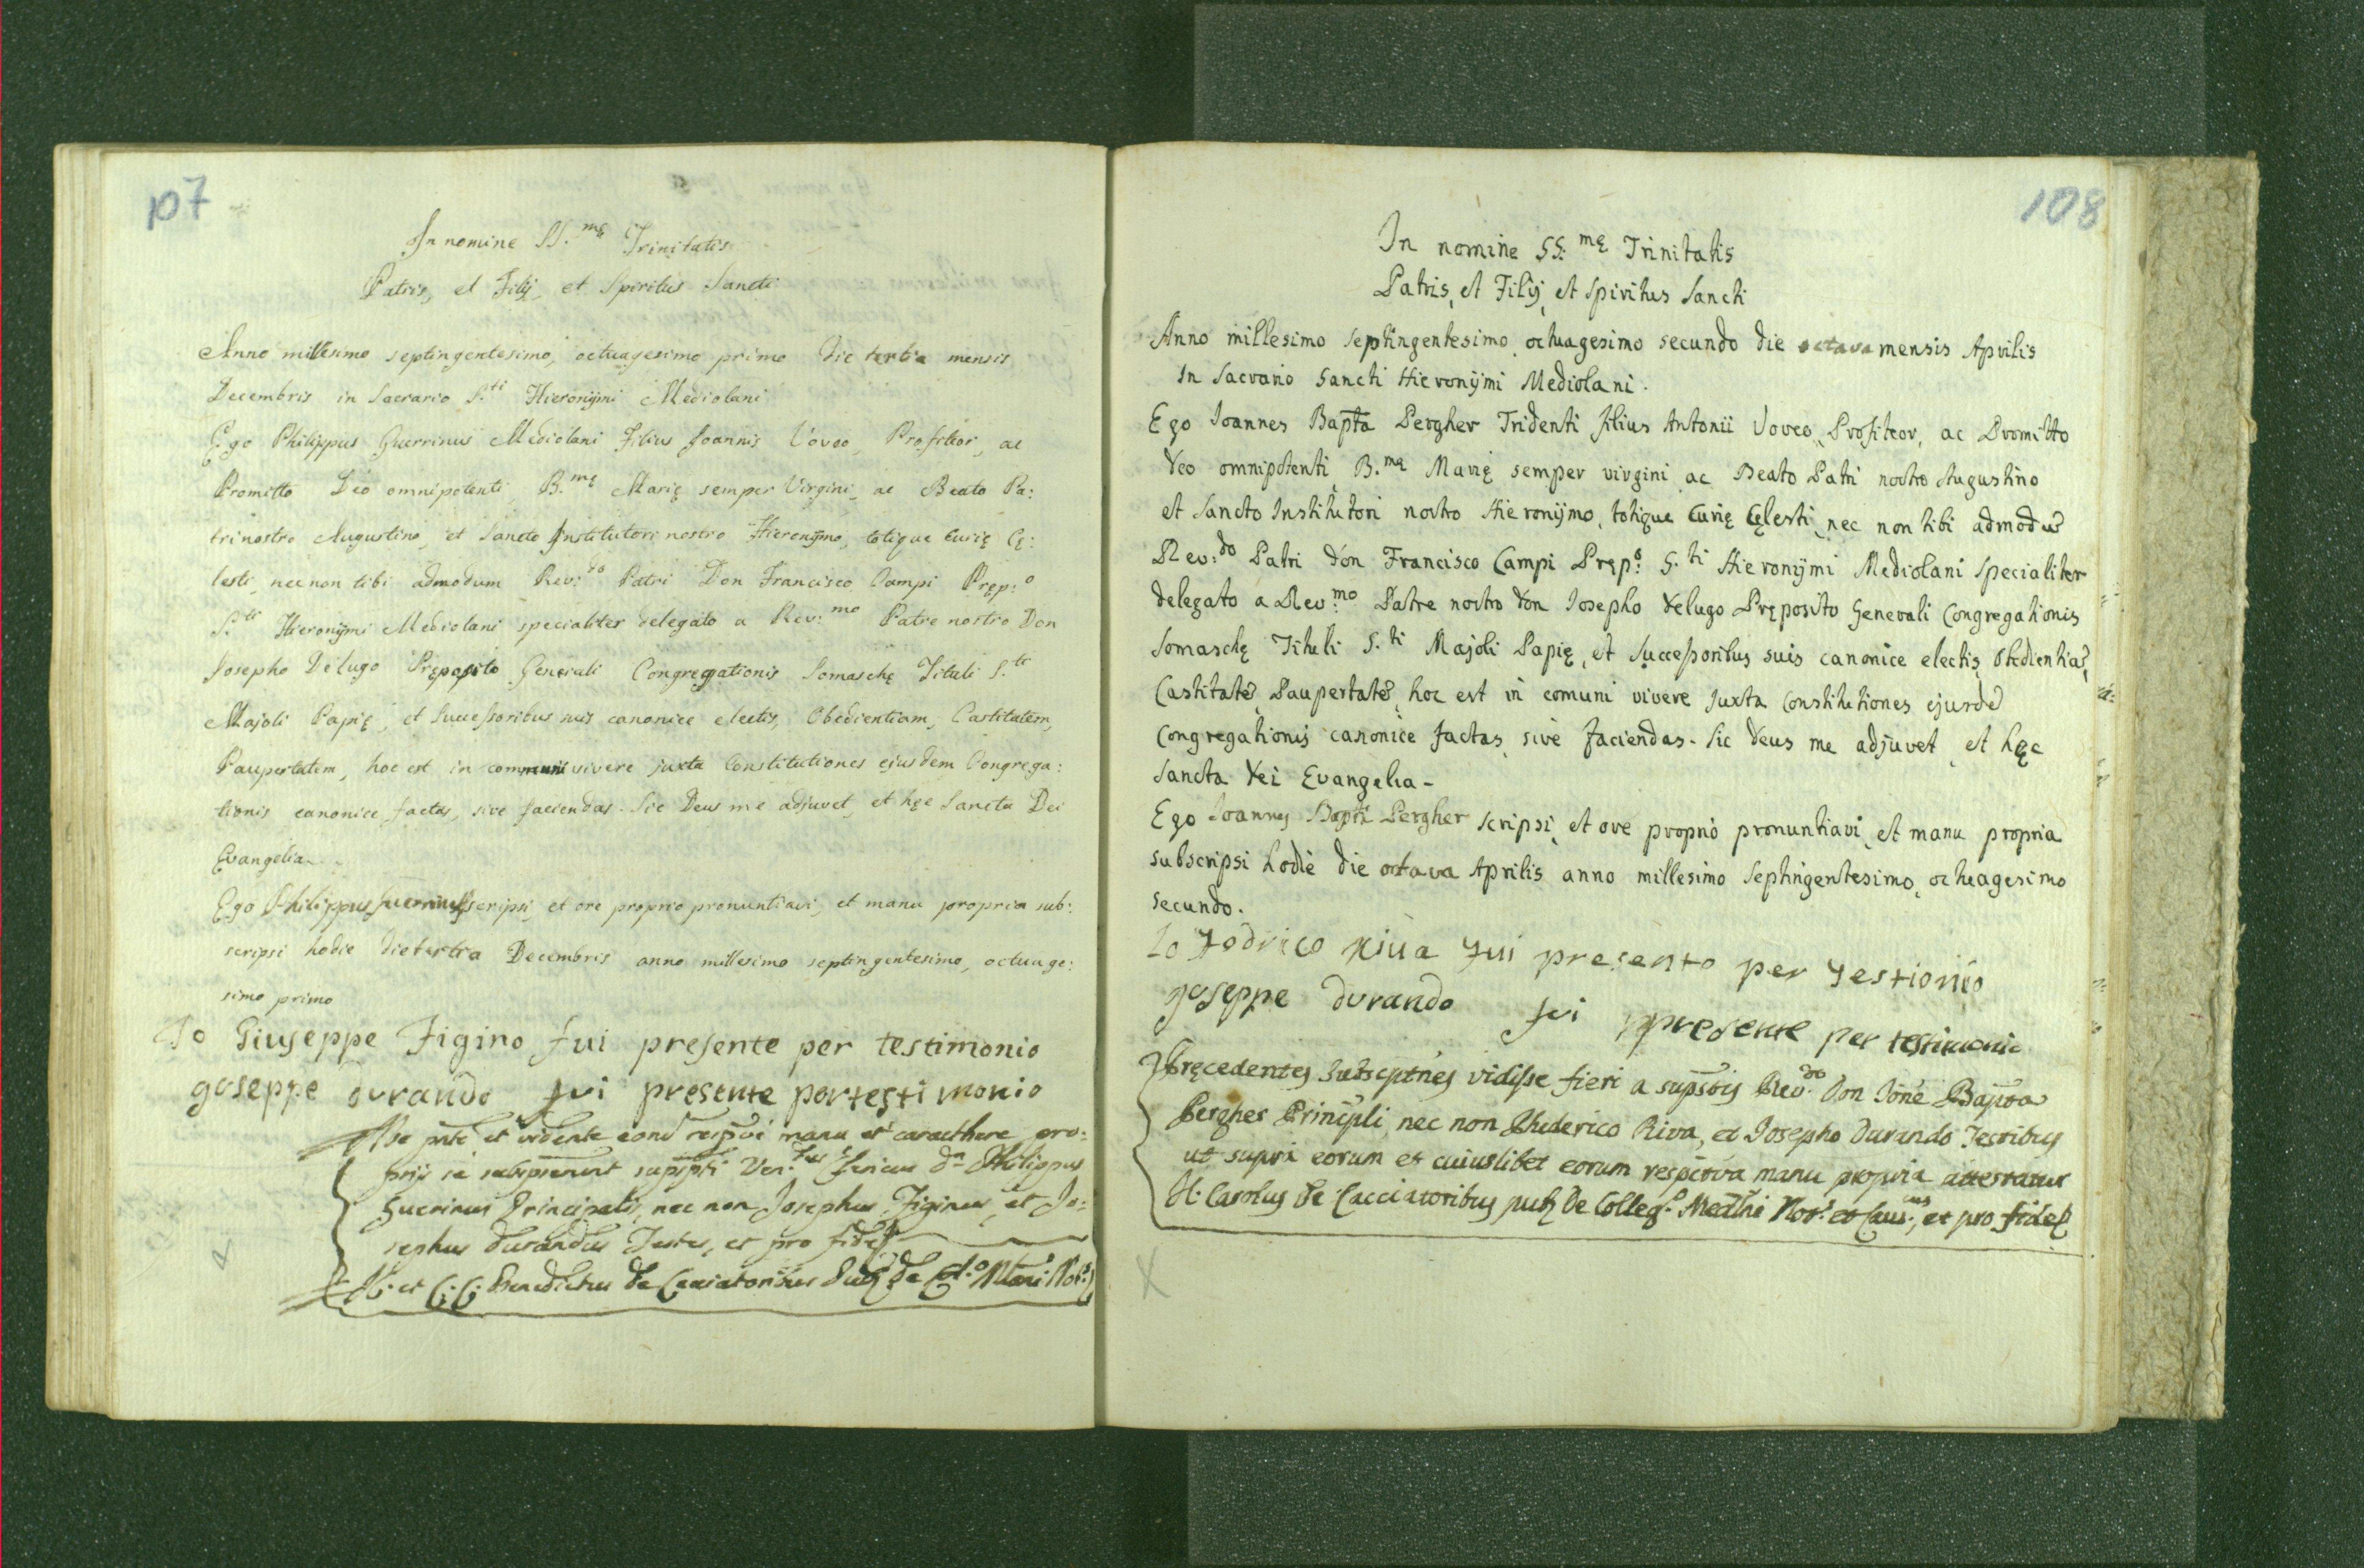 107
In nomine SS.mę Trinitatis
Patris, et Filij, et Spiritus Sancti
Anno millesimo septingentesimo, octuagesimo primo die tertia mensis
Decembris in Sacrario S.ti Hieronÿmi Mediolani
Ego Philippus Guerrinus Mediolani Filius Joannis Voveo, Profiteor, ac
Promitto Deo omnipotenti B.mę Marię semper Virgini, ac Beato Pa:
tri nostro Augustino, et Sancto Institutori nostro Hieronÿmo, totique Curię Cę:
lesti, nec non tibi admodum Rev:do Patri Don Francisco Campi Pręp:o
S.ti Hieronÿmi Mediolani specialiter delegato a Rev:mo Patre nostro Don
Josepho Delugo Pręposito Generali Congregationis Somaschę Tituli S.ti
Majoli Papię, et Successoribus suis canonice electis, Obedientiam, Castitatem,
Paupertatem, hoc est in communi vivere juxta Constitutiones ejusdem Congrega:
tionis canonice factas, sive faciendas. Sic Deus me adjuvet, et hęc Sancta Dei
Evangelia.
Ego Philippus Guerrinus scripsi et ore proprio pronuntiavi, et manu propria sub:
scripsi hodie die tertia Decembris anno millesimo septingentesimo, octuage:
simo primo
Io Giuseppe Figino fui presente per testimonio
goseppe durando fui presente per testimonio
Me pnte et vidente eond respve manu et caracthere pro:
prijs se subspserunt supspti Ven. Philippus
Guerinus Principalis, nec non Josephus Figinus, et Jo:
sephus durandus Testes, et pro fide
J. et C. C. Benedictus de Cacciatoribus Pub de Col.o Mlani Not.
108
In nomine SS.mę Trinitatis
Patris, et Filij, et Spiritus Sancti
Anno millesimo septingentesimo, octuagesimo secundo die octava mensis Aprilis
in Sacrario Sancti Hieronÿmi Mediolani.
Ego Ioannes Bapta Pergher Tridenti filius Antonii Voveo, Profiteor, ac Promitto
Deo omnipotenti, B.mę Marię semper virgini, ac Beato Patri nostro Augustino
et Sancto Institutori nostro Hieronÿmo, totique Curię Cęlesti, nec non tibi admodū
Rev:do Patri Don Francisco Campi Pręp:o S.ti Hieronÿmi Mediolani specialiter
delegato a Rev:mo Patre nostro Don Iosepho Delugo Pręposito Generali Congregationis
Somaschę Tituli S.ti Majoli Papię, et Successoribus suis canonice electis, Obedientiā,
Castitatē, Paupertatē, hoc est in comuni vivere juxta Constitutiones ejusdē
Congregationis canonice factas, sive faciendas. Sic Deus me adjuvet, et hęc
Sancta Dei Evangelia -
Ego Ioannes Bapta Pergher scripsi, et ore proprio pronuntiavi, et manu propria
subscripsi hodie die octava Aprilis anno millesimo septingentesimo, octuagesimo
secundo.
Io fodrico riua fui presento per testionio
goseppe durando fui ppresente per testimonio
Pręcedentes Subscptnes vidisse fieri a supstis Rev.do Don Ione Bapta
Pergher Principli, nec non Phederico Riva, et Josepho durando Testibus
ut supra eorum et cuiuslibet eorum respctva manu propria attestatur
J. Carolus de Cacciatoribus pub de Colleg.o Medlni Not.s et Caus.cus, et pro fide